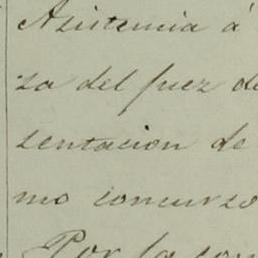 Asistencia á
za del juez de
sentacion de
mo concurso
Por la con